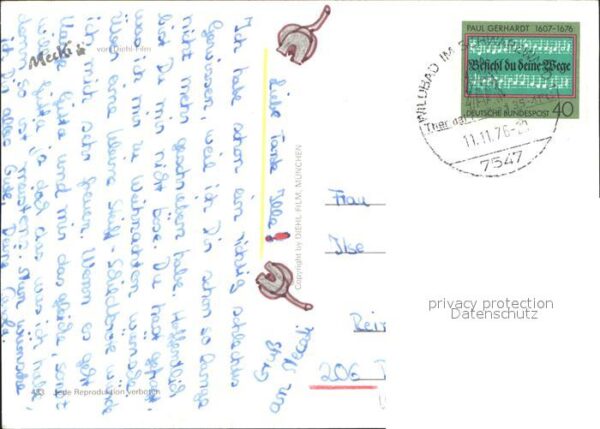 Mecki
von Diehl-Film
Liebe Tante Ilse!
Ich habe schon ein richtig schlechtes
Gewissen, weil ich Dir schon so lange
nicht mehr geschrieben habe. Hoffentlich
bist Du mir nicht böse. Du hast gefragt,
was ich mir zu Weihnachten wünsche.
Über eine kleine
ich mich sehr freuen. Wenn es geht
und mir das
ja doch aus was ich habe
dann so ist meistens. Nun wünsche
ich Dir alles Gute, Deine
Gruß
an Mecki
433 Jede Reproduktion verboten
Copyright by DIEHL FILM, MÜNCHEN
PAUL GERHARDT 1607-1676
Befiehl du deine Wege
DEUTSCHE BUNDESPOST 40
WILDBAD IM SCHWARZWALD
11.11.76
7547
Frau
Ilse
206
privacy protection
Datenschutz